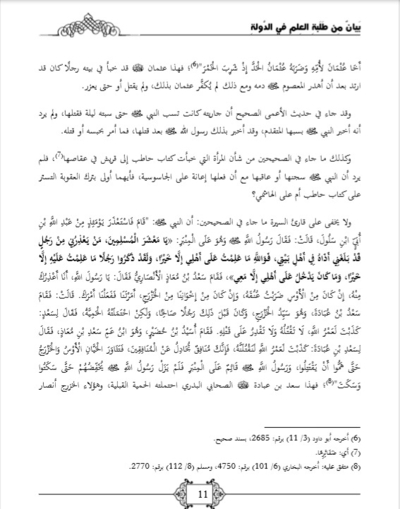 بيان من طلبة العلم في الدولة
أخا عُثمانَ لأُمِّهِ وضَرَبَهُ عُثمانُ الحَدَّ إِذْ شَرِبَ الخَمْرَ"(6)؛ فهذا عثمان ﷺ قد جاء في بيته رجلًا كان قد
ارتد بعد أن أهدر المعصوم ﷺ دمه ومع ذلك لم يُكفَّر عثمان بذلك، ولم يقتل أو حتى يعزر.
وقد جاء في حديث الأعمى الصحيح أن جاريته كانت تسب النبي ﷺ حتى سبته ليلة فقتلها، ولم يرد
أنه أخبر النبي ﷺ بسبها المتقدم؛ وقد أخبر بذلك رسول الله ﷺ بعد قتلها، فما أمر بحبسه أو قتله.
وكذلك ما جاء في الصحيحين من شأن المرأة التي خبأت كتاب حاطب إلى قريش في عقاصها(7)، فلم
يرد أن النبي ﷺ سجنها أو عاقبها مع أن فعلها إعانة على الجاسوسية، فأيهما أولى بترك العقوبة التستر
على كتاب حاطب أم على الهاشمي؟
ولا يخفى على قارئ السيرة ما جاء في الصحيحين: أن النبي ﷺ: "قَامَ فَاسْتَعْذَرَ يَوْمَئِذٍ مِنْ عَبْدِ اللَّهِ بْنِ
أُبَيٍّ ابْنِ سَلُولَ، قَالَتْ: فَقَالَ رَسُولُ اللَّهِ ﷺ وَهُوَ عَلَى الْمِنْبَرِ: «يَا مَعْشَرَ الْمُسْلِمِينَ، مَنْ يَعْذِرُنِي مِنْ رَجُلٍ
قَدْ بَلَغَنِي أَذَاهُ فِي أَهْلِ بَيْتِي، فَوَاللَّهِ مَا عَلِمْتُ عَلَى أَهْلِي إِلَّا خَيْرًا، وَلَقَدْ ذَكَرُوا رَجُلًا مَا عَلِمْتُ عَلَيْهِ إِلَّا
خَيْرًا، وَمَا كَانَ يَدْخُلُ عَلَى أَهْلِي إِلَّا مَعِي»، فَقَامَ سَعْدُ بْنُ مُعَاذٍ الْأَنْصَارِيُّ فَقَالَ: يَا رَسُولَ اللَّهِ، أَنَا أَعْذِرُكَ
مِنْهُ، إِنْ كَانَ مِنَ الْأَوْسِ ضَرَبْتُ عُنُقَهُ، وَإِنْ كَانَ مِنْ إِخْوَانِنَا مِنَ الْخَزْرَجِ، أَمَرْتَنَا فَفَعَلْنَا أَمْرَكَ. قَالَتْ: فَقَامَ
سَعْدُ بْنُ عُبَادَةَ، وَهُوَ سَيِّدُ الْخَزْرَجِ، وَكَانَ قَبْلَ ذَلِكَ رَجُلًا صَالِحًا، وَلَكِنِ احْتَمَلَتْهُ الْحَمِيَّةُ، فَقَالَ لِسَعْدٍ:
كَذَبْتَ لَعَمْرُ اللَّهِ، لَا تَقْتُلُهُ وَلَا تَقْدِرُ عَلَى قَتْلِهِ. فَقَامَ أُسَيْدُ بْنُ حُضَيْرٍ، وَهُوَ ابْنُ عَمِّ سَعْدِ بْنِ مُعَاذٍ، فَقَالَ
لِسَعْدِ بْنِ عُبَادَةَ: كَذَبْتَ لَعَمْرُ اللَّهِ لَنَقْتُلَنَّهُ، فَإِنَّكَ مُنَافِقٌ تُجَادِلُ عَنِ الْمُنَافِقِينَ، فَتَثَاوَرَ الْحَيَّانِ الْأَوْسُ وَالْخَزْرَجُ
حَتَّى هَمُّوا أَنْ يَقْتَتِلُوا، وَرَسُولُ اللَّهِ ﷺ قَائِمٌ عَلَى الْمِنْبَرِ، فَلَمْ يَزَلْ رَسُولُ اللَّهِ ﷺ يُخَفِّضُهُمْ حَتَّى سَكَتُوا
وَسَكَتَ"(8)؛ فهذا سعد بن عبادة الصحابي البدري احتملته الحمية القبلية، وهؤلاء الخزرج أنصار
(6) أخرجه أبو داود (3/ 11) برقم: 2685، بسند صحيح.
(7) أي: ضفائرها.
(8) متفق عليه: أخرجه البخاري (6/ 101) برقم: 4750، ومسلم (8/ 112) برقم: 2770.
11